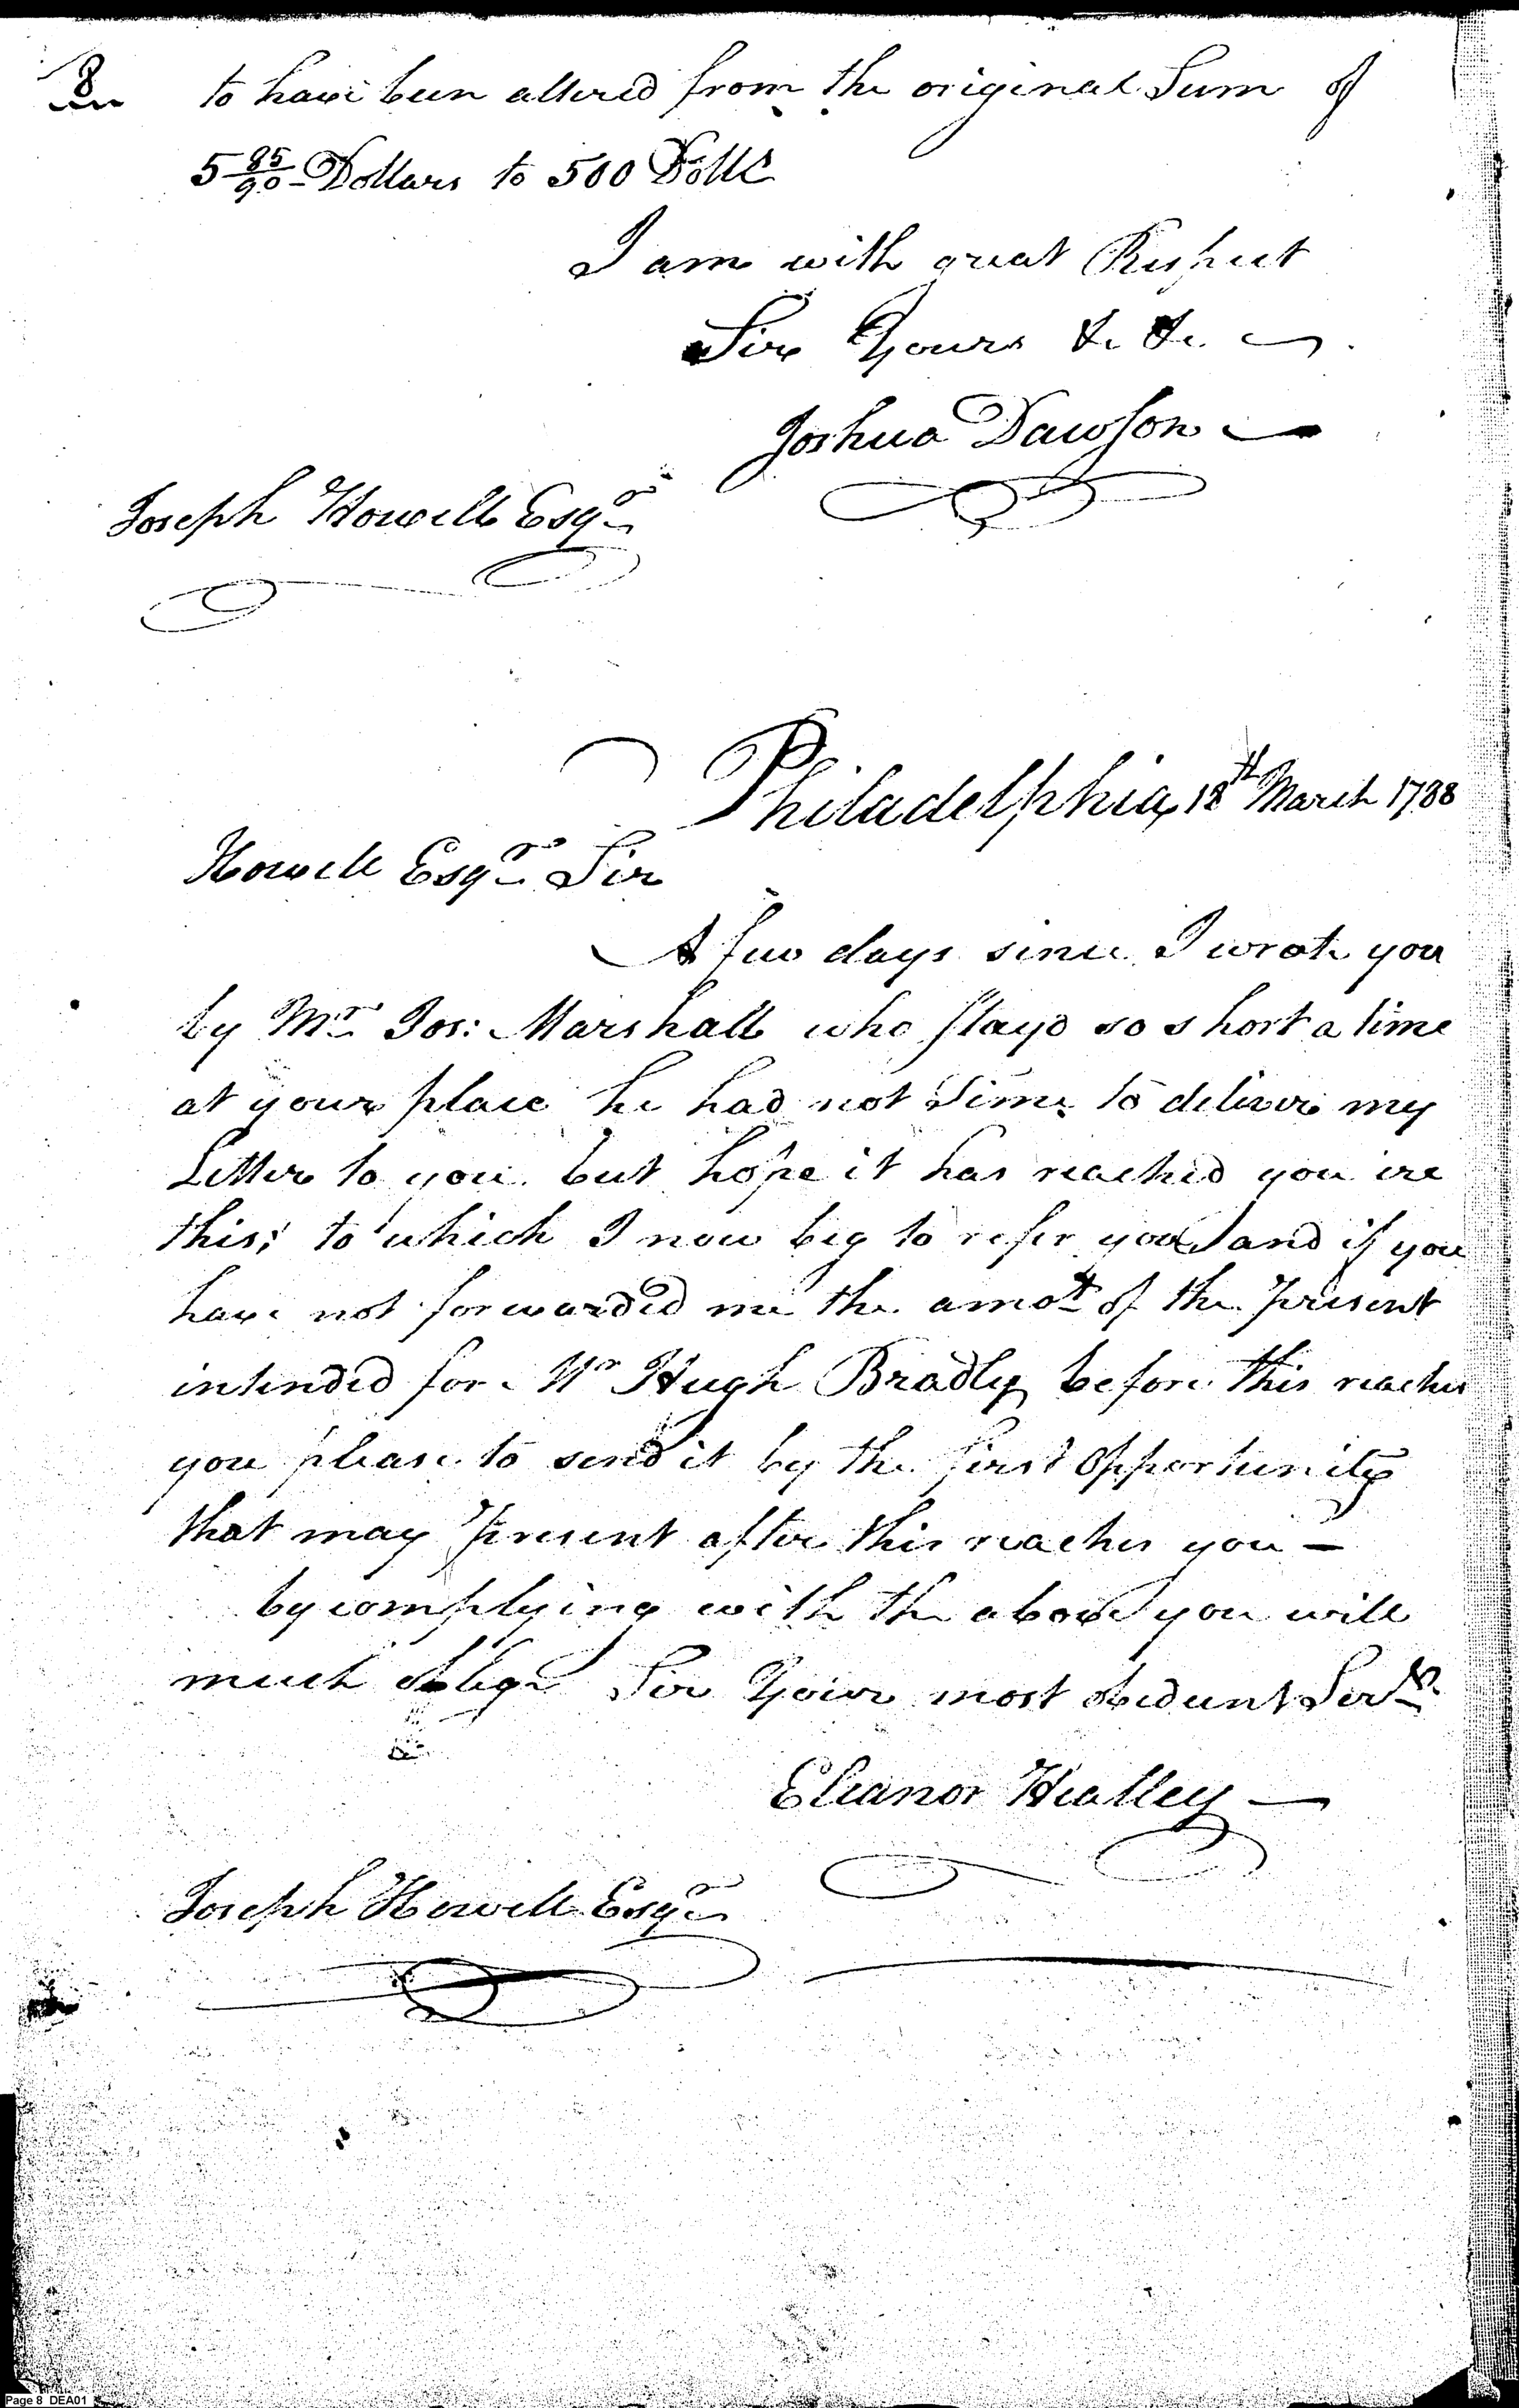 8 to have been altered from the original Sum of
5 85/90 Dollars to 500 Dolls
I am with great Respect
Sir Yours &c &c.
Joshua Dawson
Joseph Howell Esqr
Philadelphia 18th March 1788
Howell Esqr Sir
A few days since I wrote you
by Mr Jos: Marshall who stayd so short a time
at your place he had not time to deliver my
Letter to you but hope it has reached you ere
this; to which I now beg to refer you and if you
have not forwarded me the amot of the present
intended for Mr Hugh Bradly before this reaches
you please to send it by the first Opportunity
that may present after this reaches you —
by complying with the above you will
much oblige Sir Your most obedient Servt
Eleanor Healley —
Joseph Howell Esqr
Page 8 DEA01